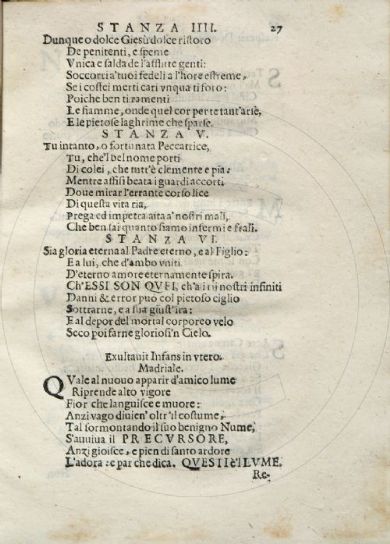 STANZA IIII. 27
Dunque o dolce Giesù dolce ristoro
De penitenti, e speme
Vnica e salda de l'afflitte genti:
Soccorri a'tuoi fedeli a l'hore estreme,
Se i costei merti cari vnqua ti foro:
Poiche ben ti ramenti
Le fiamme, onde quel cor per te tant'arse,
E le pietose laghrime che sparse.
STANZA V.
Tu intanto, o fortunata Peccatrice,
Tu, che'l bel nome porti
Di colei, che tutt'è clemente e pia:
Mentre affisi beata i guardi accorti
Doue mirar l'errante corso lice
Di questa vita ria,
Prega ed impetra aita a' nostri mali,
Che ben sai quanto siamo infermi e frali.
STANZA VI.
Sia gloria eterna al Padre eterno, e al Figlio:
E a lui, che d'ambo vniti
D'eterno amore eternamente spira.
Ch'ESSI SON QVEI, ch'a i nostri infiniti
Danni & error può col pietoso ciglio
Sottrarne, e a sua giust'ira:
E al depor del mortal corporeo velo
Seco poi farne gloriosi'n Cielo.
Exultauit Infans in vtero.
Madriale.
QVale al nuouo apparir d'amico lume
Riprende alto vigore
Fior che languisce e muore:
Anzi vago diuien' oltr'il costume,
Tal sormontando il suo benigno Nume,
S'auuiua il PRECVRSORE,
Anzi gioisce, e pien di santo ardore
L'adora: e par che dica. QVESTI è'l LVME.
Re-